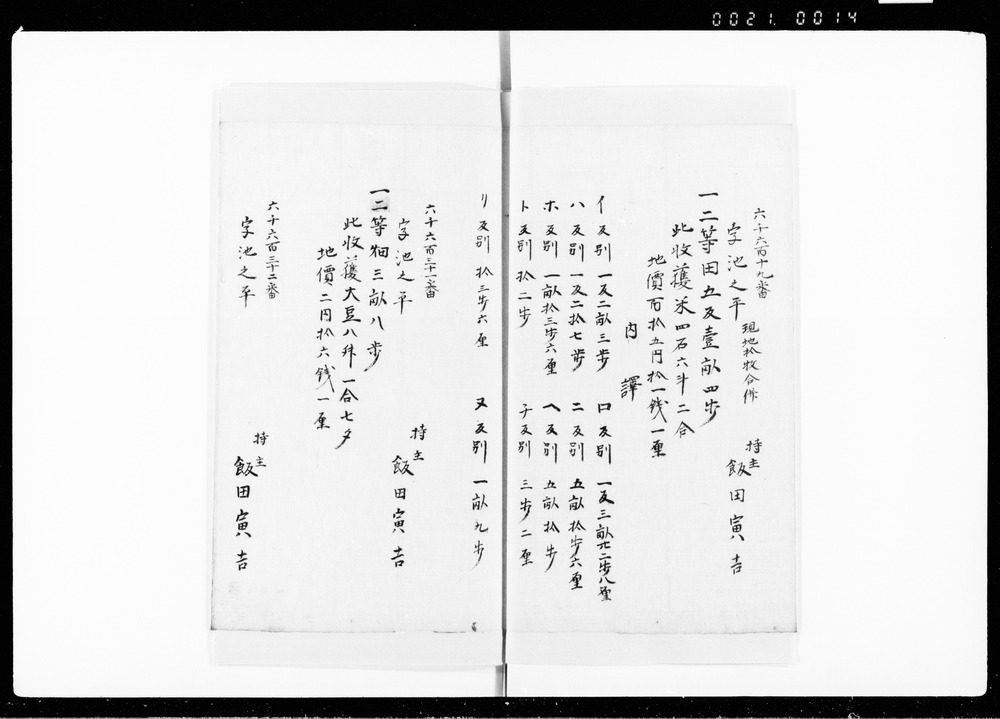 0021.0014
六千六百十九番
字池之平 現地拾枚合併
持主 飯田寅吉
一二等田五反壹畝四歩
此收護米四石六斗二合
地價百拾五円拾一銭一厘
内譯
イ反別 一反二畝三歩 ロ反別 一反三畝廿二歩八厘
ハ反別 一反二拾七歩 ニ反別 五畝拾歩六厘
ホ反別 一畝拾三歩六厘 ヘ反別 五畝拾歩
ト反別 拾二歩 チ反別 三歩二厘
リ反別 拾三歩六厘 ヌ反別 一畝九歩
六千六百三十一番
字池之平
持主 飯田寅吉
一二等畑三畝八歩
此收護大豆八舛一合七夕
地價二円拾六銭一厘
六千六百三十二番
字池之平
持主 飯田寅吉